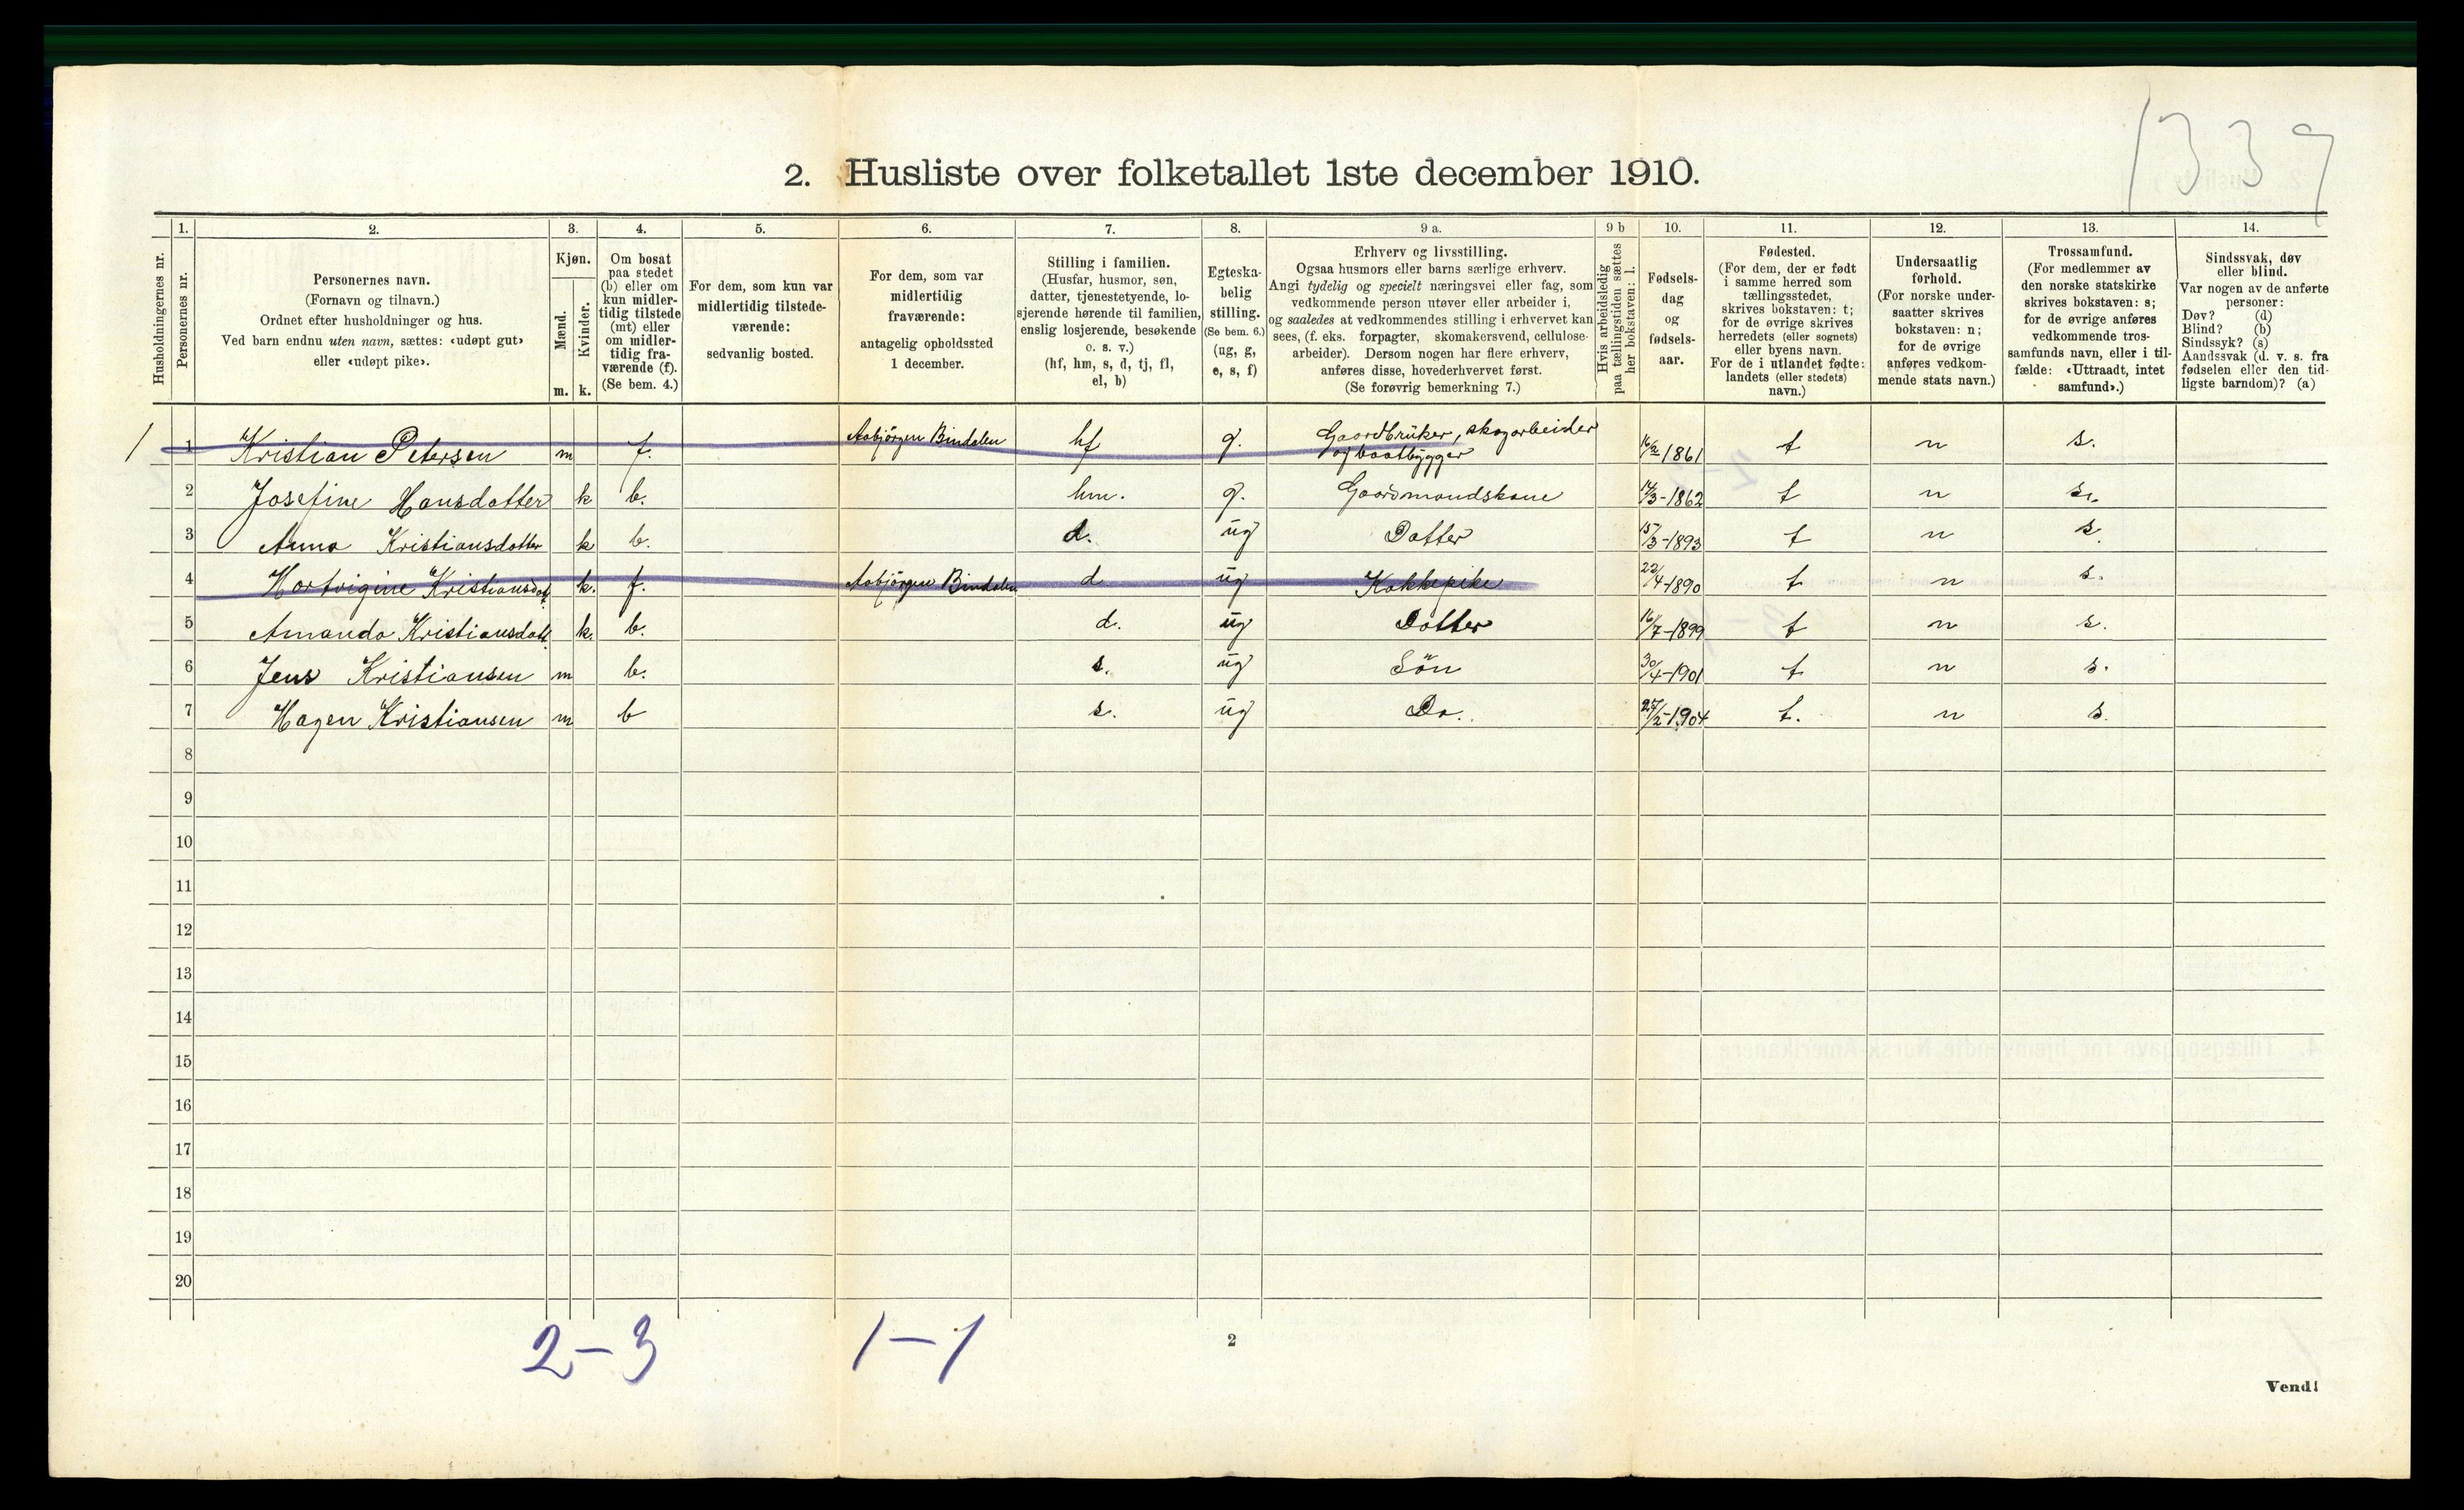 1339
2. Husliste over folketallet 1ste december 1910.
Husholdningernes nr.
1. Personernes nr.
2. Personernes navn.
(Fornavn og tilnavn.)
Ordnet efter husholdninger og hus.
Ved barn endnu uten navn, sættes: «udøpt gut»
eller «udøpt pike».
3. Kjøn.
Mænd. m.
Kvinder. k.
4. Om bosat
paa stedet
(b) eller om
kun midler-
tidig tilstede
(mt) eller
om midler-
tidig fra-
værende (f).
(Se bem. 4.)
5. For dem, som kun var
midlertidig tilstede-
værende:
sedvanlig bosted.
6. For dem, som var
midlertidig
fraværende:
antagelig opholdssted
1 december.
7. Stilling i familien.
(Husfar, husmor, søn,
datter, tjenestetyende, lo-
sjerende hørende til familien,
enslig losjerende, besøkende
o. s. v.)
(hf, hm, s, d, tj, fl,
el, b)
8. Egteska-
belig
stilling.
(Se bem. 6.)
(ug, g,
e, s, f)
9 a. Erhverv og livsstilling.
Ogsaa husmors eller barns særlige erhverv.
Angi tydelig og specielt næringsvei eller fag, som
vedkommende person utøver eller arbeider i,
og saaledes at vedkommendes stilling i erhvervet kan
sees, (f. eks. forpagter, skomakersvend, cellulose-
arbeider). Dersom nogen har flere erhverv,
anføres disse, hovederhvervet først.
(Se forøvrig bemerkning 7.)
9 b Hvis arbeidsledig
paa tællingstiden sættes
her bokstaven: l.
10. Fødsels-
dag
og
fødsels-
aar.
11. Fødested.
(For dem, der er født
i samme herred som
tællingsstedet,
skrives bokstaven: t;
for de øvrige skrives
herredets (eller sognets)
eller byens navn.
For de i utlandet fødte:
landets (eller stedets)
navn.)
12. Undersaatlig
forhold.
(For norske under-
saatter skrives
bokstaven: n;
for de øvrige
anføres vedkom-
mende stats navn.)
13. Trossamfund.
(For medlemmer av
den norske statskirke
skrives bokstaven: s;
for de øvrige anføres
vedkommende tros-
samfunds navn, eller i til-
fælde: «Uttraadt, intet
samfund».)
14. Sindssvak, døv
eller blind.
Var nogen av de anførte
personer:
Døv? (d)
Blind? (b)
Sindssyk? (s)
Aandssvak (d. v. s. fra
fødselen eller den tid-
ligste barndom)? (a)
1 1 Kristian Petersen m f. Aabjörgen Bindalen hf g. Gaardbrüker, skogarbeider og baatbygger 16/2 1861 t n s.
2 Josefine Hansdatter k b. hm. g. Gaardmandskone 14/3-1862 t n s.
3 Anna Kristiansdatter k b. d. üg Datter 15/3-1893 t n s.
4 Hartvigine Kristiansdat. k. f. Aabjörgen Bindalen d üg Kokkepike 22/4-1890 t n s.
5 Amanda Kristiansdatt. k. b. d. üg Datter 16/7-1899 t n s.
6 Jens Kristiansen m b. s. üg Sön 30/4-1901 t n s.
7 Hagen Kristiansen m b s. üg Do. 27/2-1904 t. n s.
8
9
10
11
12
13
14
15
16
17
18
19
20
2-3 1-1
2
Vend!